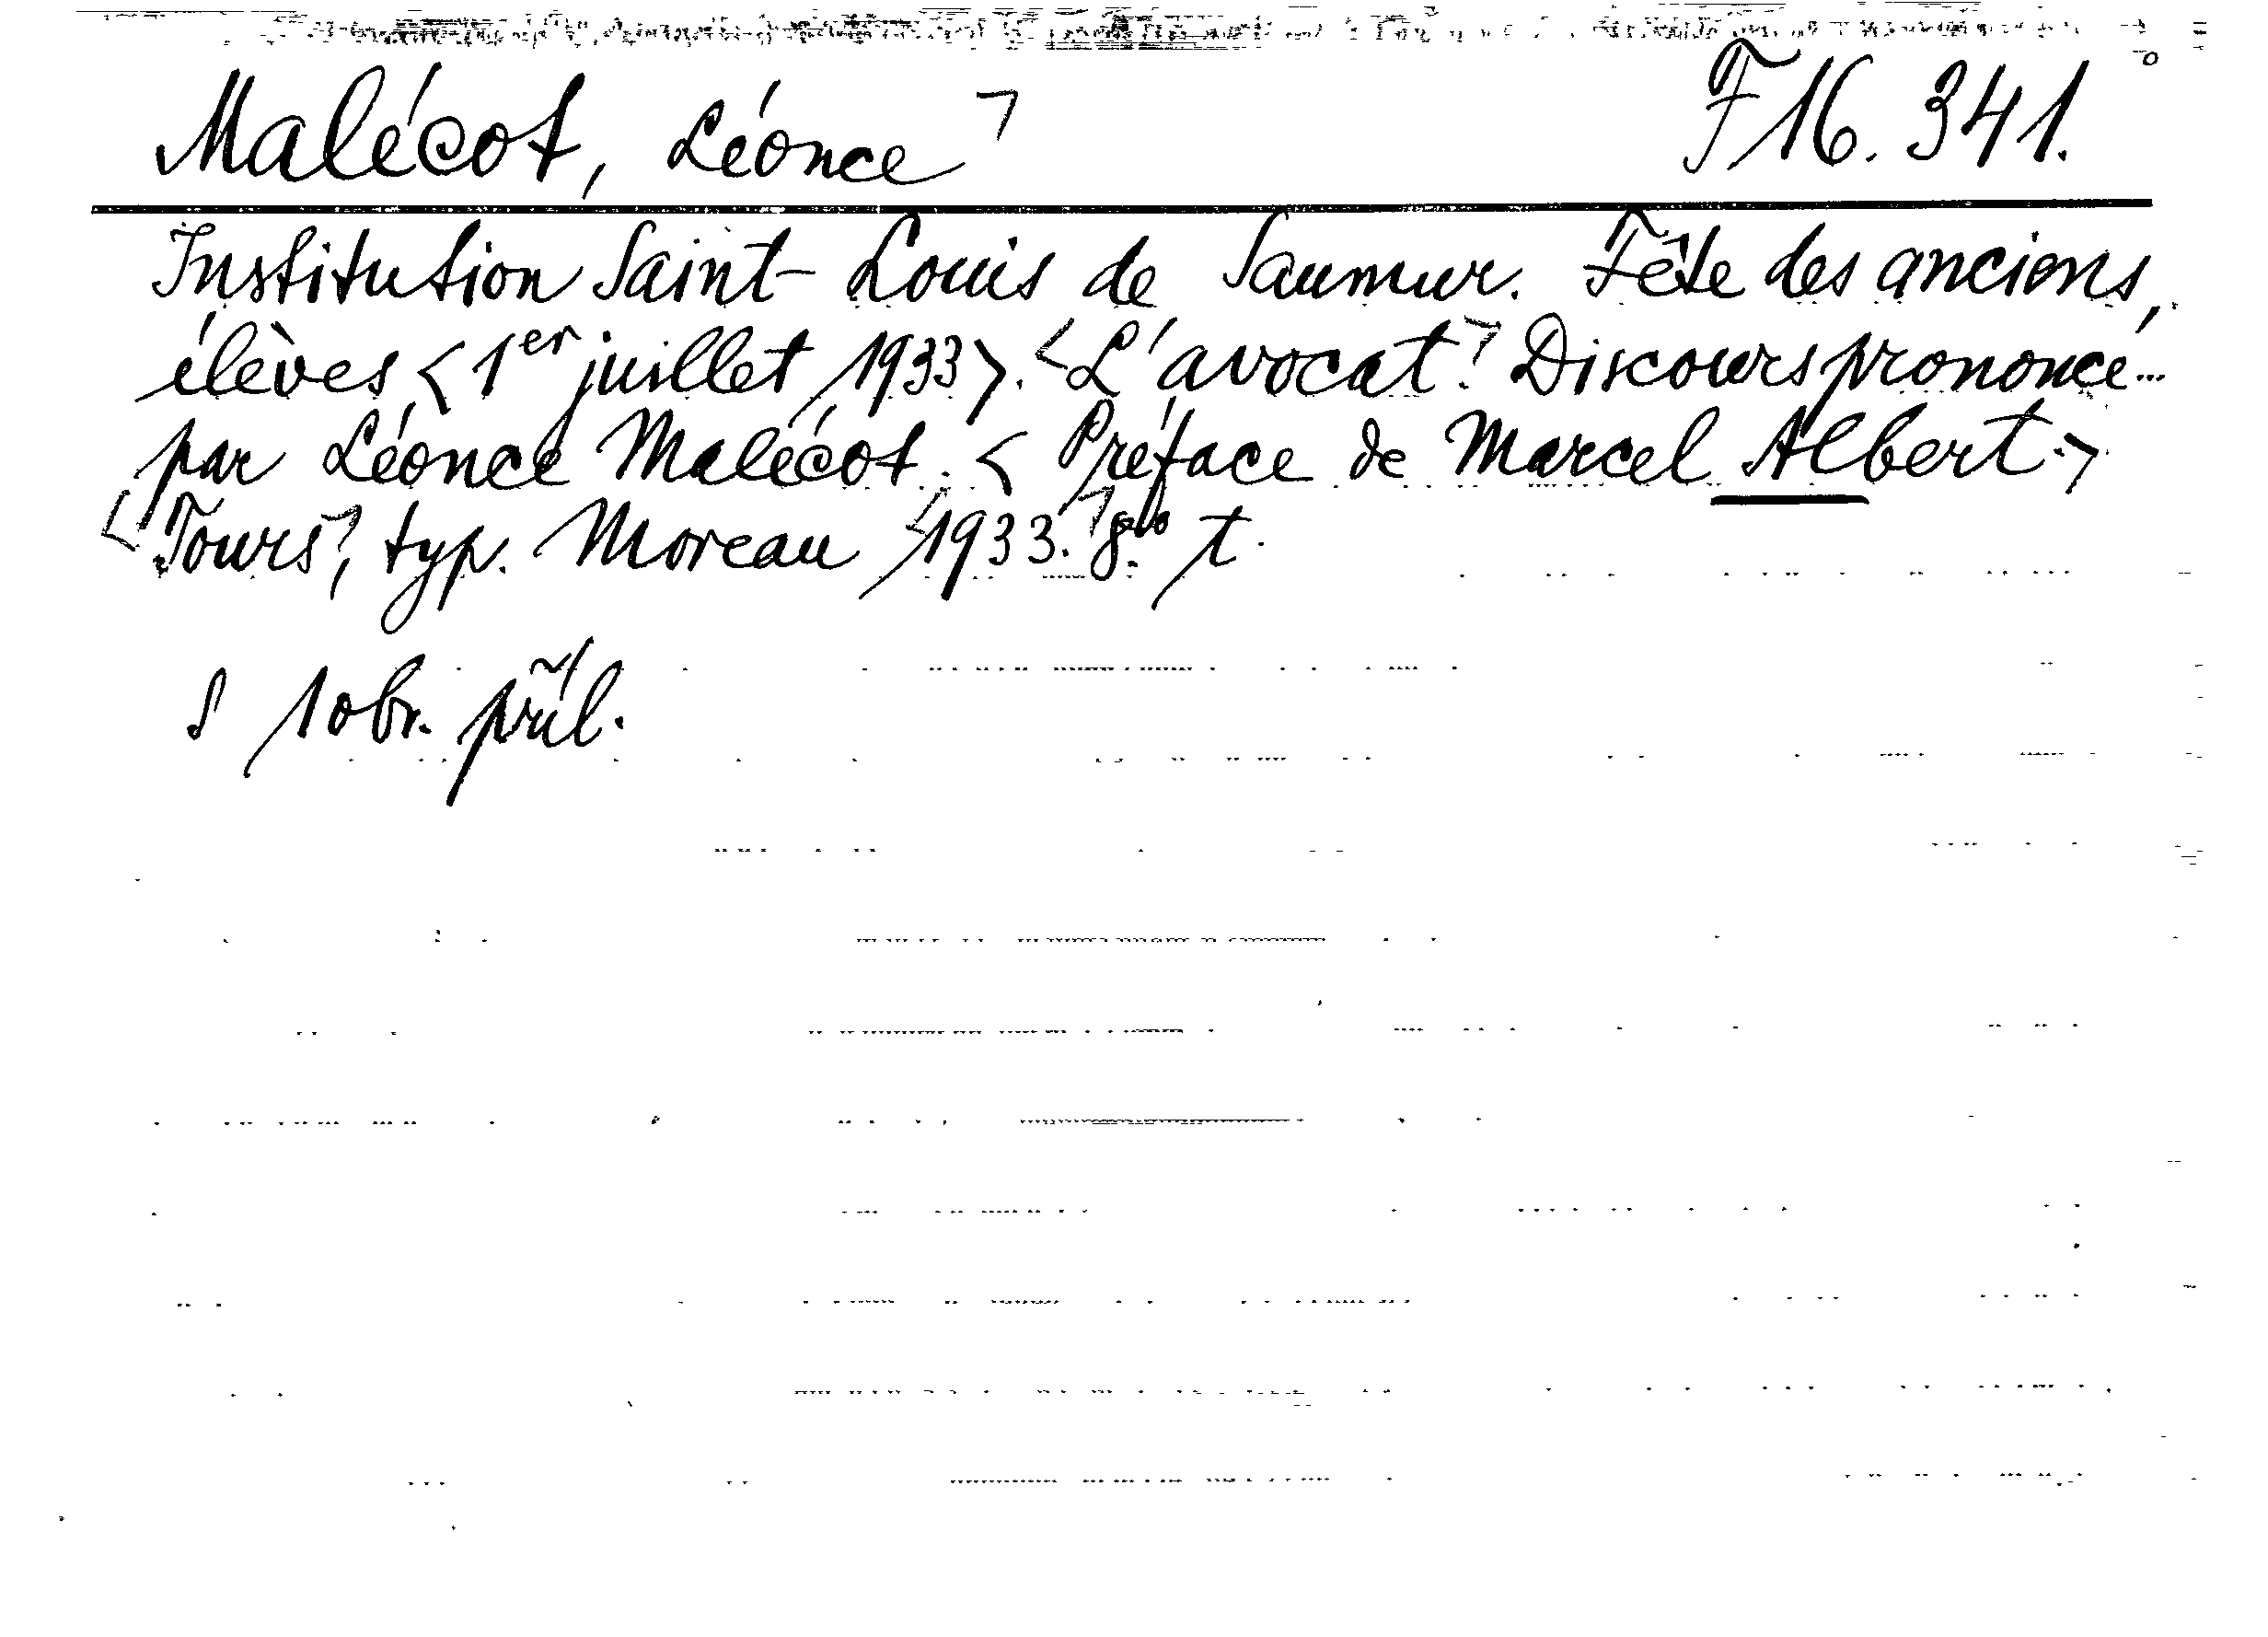 Malécot, Léonce ┐ F 16. 341.
Institution Saint-Louis de Saumur. Fête des anciens
élèves <1er juillet 1933>. <L'avocat.> Discours prononcé...
par Léonce Malécot. < Préface de Marcel Albert.>
<Tours>, typ. Moreau <1933.> 8° t.
S 1 obr. příl.